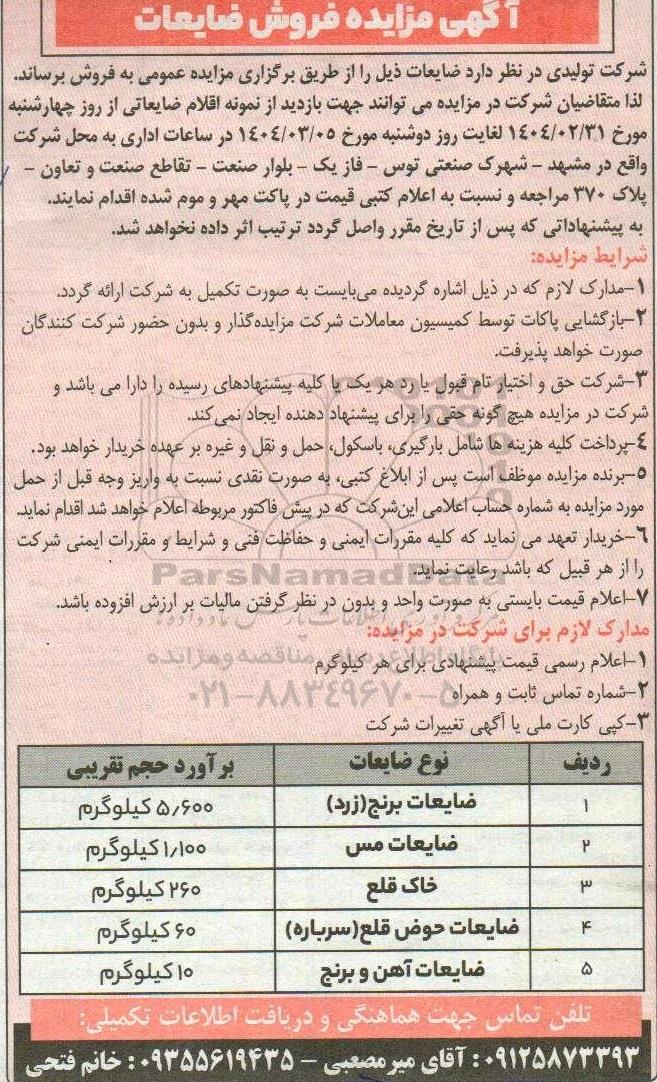 آگهی مزایده فروش ضایعات
شرکت تولیدی در نظر دارد ضایعات ذیل را از طریق برگزاری مزایده عمومی به فروش برساند.
لذا متقاضیان شرکت در مزایده می توانند جهت بازدید از نمونه اقلام ضایعاتی از روز چهارشنبه
مورخ ۱٤۰٤/۰۲/۳۱ لغایت روز دوشنبه مورخ ۱٤۰٤/۰۳/۰۵ در ساعات اداری به محل شرکت
واقع در مشهد - شهرک صنعتی توس - فاز یک - بلوار صنعت - تقاطع صنعت و تعاون -
پلاک ۳۷۰ مراجعه و نسبت به اعلام کتبی قیمت در پاکت مهر و موم شده اقدام نمایند.
به پیشنهاداتی که پس از تاریخ مقرر واصل گردد ترتیب اثر داده نخواهد شد.
شرایط مزایده:
۱-مدارک لازم که در ذیل اشاره گردیده می‌بایست به صورت تکمیل به شرکت ارائه گردد.
۲-بازگشایی پاکات توسط کمیسیون معاملات شرکت مزایده‌گذار و بدون حضور شرکت کنندگان
صورت خواهد پذیرفت.
۳-شرکت حق و اختیار تام قبول یا رد هر یک یا کلیه پیشنهادهای رسیده را دارا می باشد و
شرکت در مزایده هیچ گونه حقی را برای پیشنهاد دهنده ایجاد نمی‌کند.
٤-پرداخت کلیه هزینه ها شامل بارگیری، باسکول، حمل و نقل و غیره بر عهده خریدار خواهد بود.
۵-برنده مزایده موظف است پس از ابلاغ کتبی، به صورت نقدی نسبت به واریز وجه قبل از حمل
مورد مزایده به شماره حساب اعلامی این‌شرکت که در پیش فاکتور مربوطه اعلام خواهد شد اقدام نماید.
۶-خریدار تعهد می نماید که کلیه مقررات ایمنی و حفاظت فنی و شرایط و مقررات ایمنی شرکت
را از هر قبیل که باشد رعایت نماید.
ParsNamadData
۷-اعلام قیمت بایستی به صورت واحد و بدون در نظر گرفتن مالیات بر ارزش افزوده باشد.
مدارک لازم برای شرکت در مزایده:
پایگاه اطلاع رسانی مناقصه و مزایده
۱-اعلام رسمی قیمت پیشنهادی برای هر کیلوگرم
۰۲۱-۸۸۳٤۹۶۷۰-۵
۲-شماره تماس ثابت و همراه
۳-کپی کارت ملی یا آگهی تغییرات شرکت
ردیف نوع ضایعات برآورد حجم تقریبی
۱ ضایعات برنج(زرد) ۵٫۶۰۰ کیلوگرم
۲ ضایعات مس ۱٫۱۰۰ کیلوگرم
۳ خاک قلع ۲۶۰ کیلوگرم
۴ ضایعات حوض قلع(سرباره) ۶۰ کیلوگرم
۵ ضایعات آهن و برنج ۱۰ کیلوگرم
تلفن تماس جهت هماهنگی و دریافت اطلاعات تکمیلی:
۰۹۱۲۵۸۷۳۳۹۳: آقای میرمصعبی - ۰۹۳۵۵۶۱۹۴۳۵: خانم فتحی